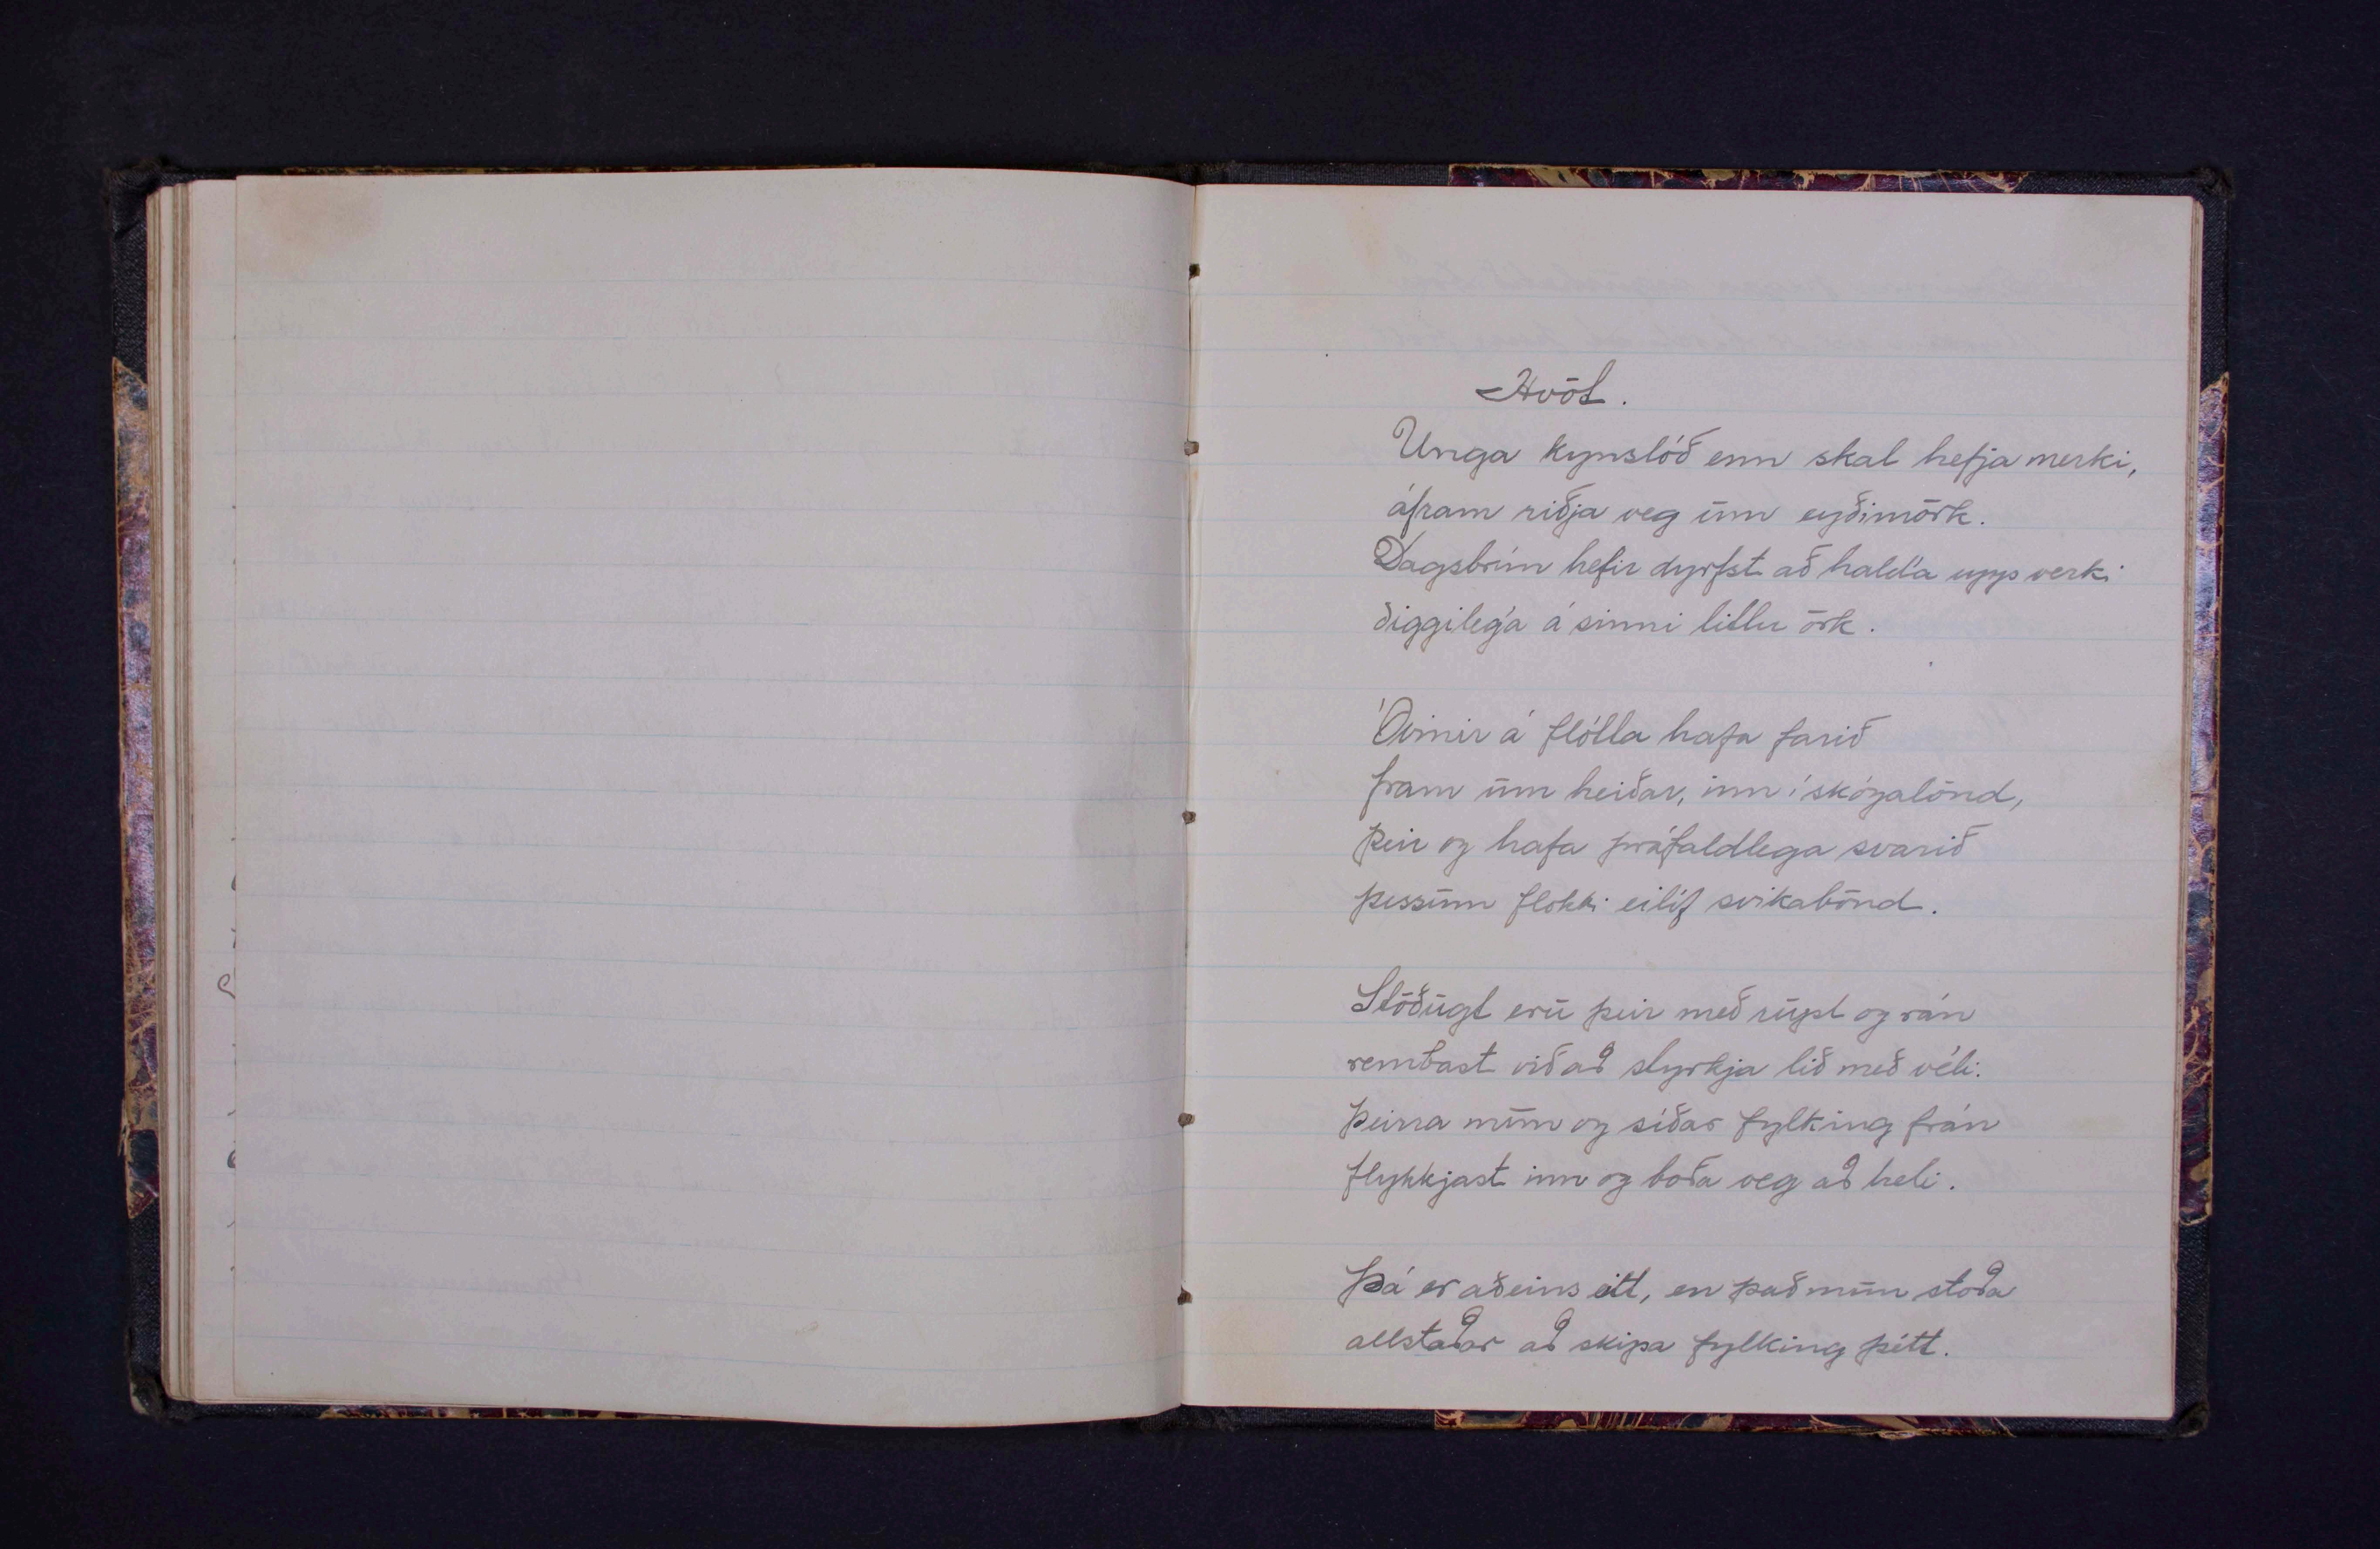 Hvöt.
Unga kynslóð enn skal hefja merki,
áfram riðja veg um eyðimörk.
Dagsbrún hefir dyrfst að halda upp verki
diggilega á sinni litlu örk.
Óvinir á flótta hafa farið
fram um heiðar, inn í skógalönd,
þeir og hafa þráfaldlega svarið
þessum flokki eilíf svikabönd.
Stöðugt eru þeir með rupl og rán
rembast við að styrkja lið með véli.
Þeirra mun og síðar fylking frán
flykkjast inn og boða veg að heli.
Þá er aðeins eitt, en það mun stoða
allstaðar að skipa fylking þétt.